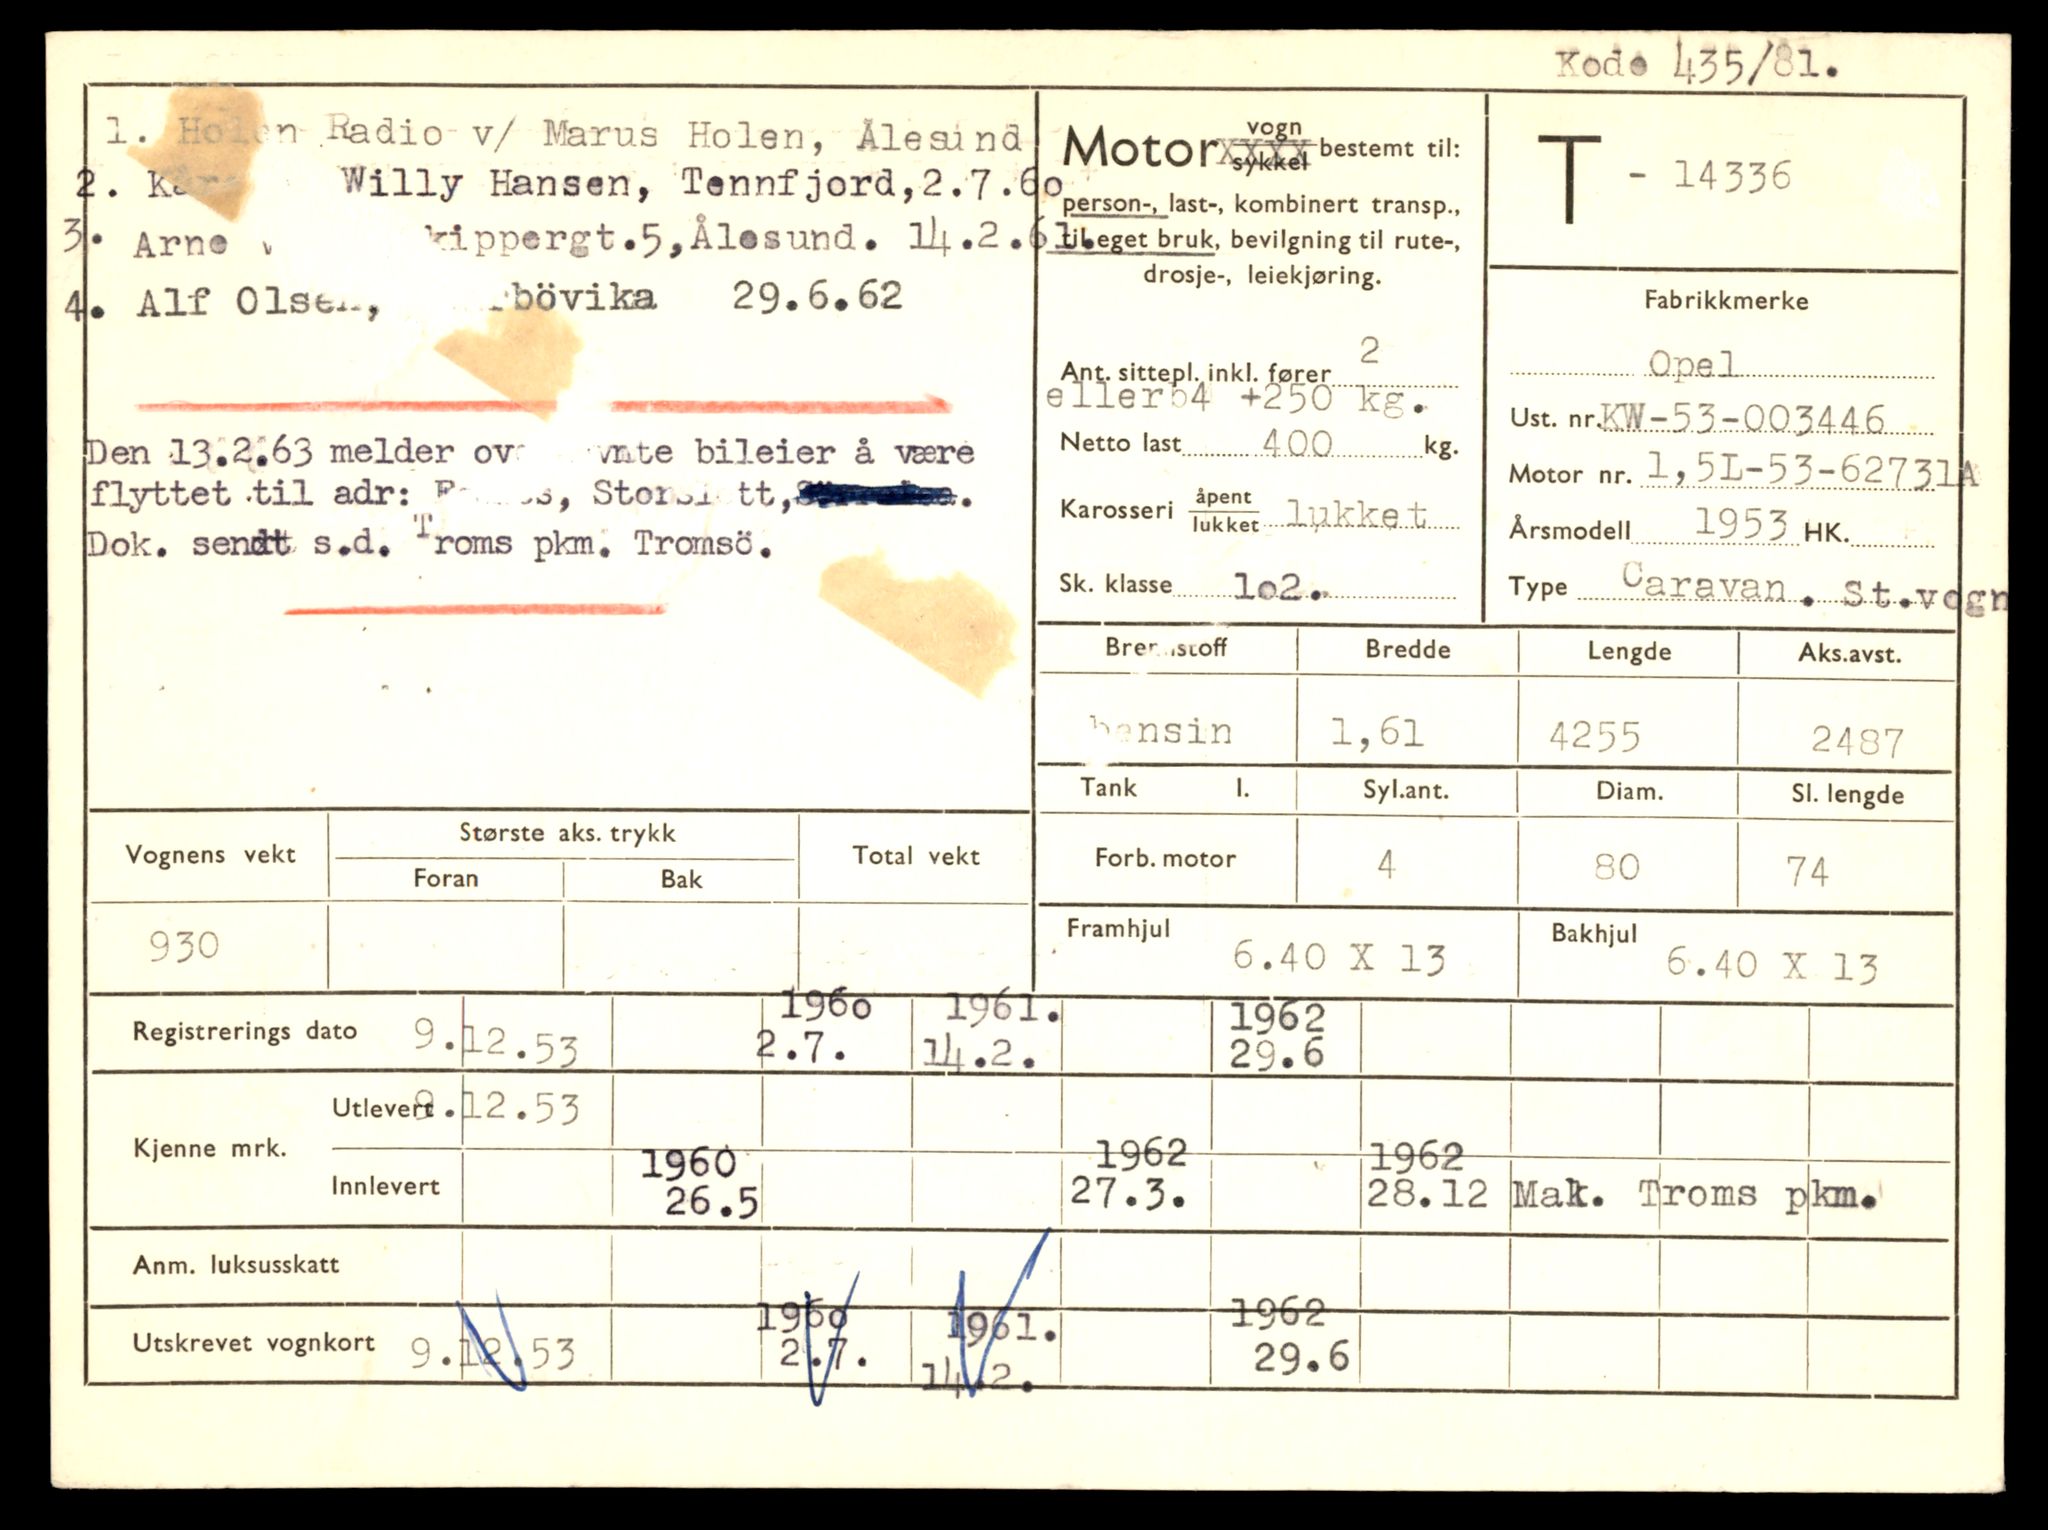 Kode 435/81.
1. Holen Radio v/ Marus Holen, Ålesund
2. Willy Hansen, Tennfjord,2.7.60
3. Arne kippergt.5,Ålesund. 14.2.61.
4. Alf Olsen, bövika 29.6.62
Den 13.2.63 melder bileier å være
flyttet til adr: Storslett,
Dok. sendt s.d. Troms pkm. Tromsö.
Motor vogn
sykkel bestemt til:
XXXX
person-, last-, kombinert transp.,
til eget bruk, bevilgning til rute-,
drosje-, leiekjøring.
Ant. sittepl. inkl. fører 2
eller 4 +250 kg.
Netto last 400 kg.
Karosseri åpent
lukket lukket
Sk. klasse 102.
T - 14336
Fabrikkmerke
Opel
Ust. nr. KW-53-003446
Motor nr. 1,5L-53-62731A
Årsmodell 1953 HK.
Type Caravan. St.vogn
Brennstoff Bredde Lengde Aks.avst.
bensin 1,61 4255 2487
Tank l. Syl.ant. Diam. Sl. lengde
Forb. motor 4 80 74
Framhjul 6.40 X 13 Bakhjul 6.40 X 13
Vognens vekt Største aks. trykk Total vekt
Foran Bak
930
1960 1961. 1962
Registrerings dato 9.12.53 2.7. 14.2. 29.6
Kjenne mrk.
Utlevert 9.12.53
1960 1962 1962
Innlevert 26.5 27.3. 28.12 Mak. Troms pkm.
Anm. luksusskatt
1960 1961. 1962
Utskrevet vognkort 9.12.53 2.7. 14.2. 29.6